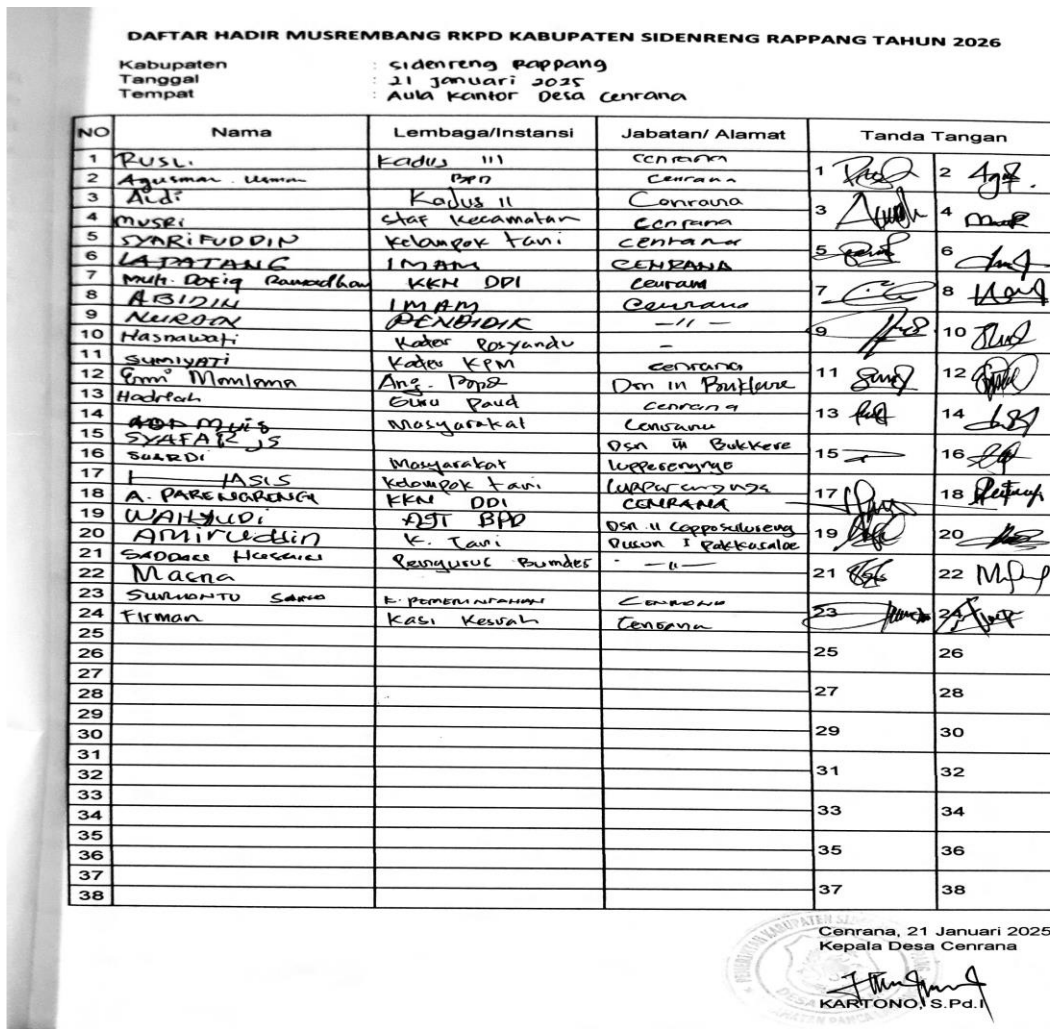 DAFTAR HADIR MUSREMBANG RKPD KABUPATEN SIDENRENG RAPPANG TAHUN 2026
Kabupaten : Sidenreng Rappang
Tanggal : 21 Januari 2025
Tempat : Aula Kantor Desa Cenrana
NO Nama Lembaga/Instansi Jabatan/ Alamat Tanda Tangan
1 RUSLi Kadus III Cenrana 1 2
2 Agusman Usman BPD Cenrana
3 Aldi Kadus II Cenrana 3 4
4 MUSRi Staf Kecamatan Cenrana
5 SYARIFUDDIN Kelompok tani Cenrana 5 6
6 LAPATANG IMAM CENRANA
7 Muh. Ramadhan KKN DDI 7 8
8 ABIDIN IMAM Cenrana
9 NURDIN PENDIDIK -11- 9 10
10 Hasnawati Kader Posyandu -
11 SUMIYATI Kader KPM Cenrana 11 12
12 Ang. Dsn III
13 Guru Paud Cenrana 13 14
14 MUIS Masyarakat Cenrana
15 SYAFAR JS Dsn III Bukkere 15 16
16 SUARDI Masyarakat
17 JASIS Kelompok tani 17 18
18 A. PARENGRENGI KKN DDI CENRANA
19 WAHYUDI BPD Dsn II 19 20
20 Amiruddin K. Tani Dusun I
21 SADDAM Pengurus Bumdes -11- 21 22
22 Masna
23 K. PEMERINTAHAN 23 24
24 Firman Kasi Kesrah Cenrana
25
26 25 26
27
28 27 28
29
30 29 30
31
32 31 32
33
34 33 34
35
36 35 36
37
38 37 38
Cenrana, 21 Januari 2025
Kepala Desa Cenrana
KARTONO, S.Pd.I